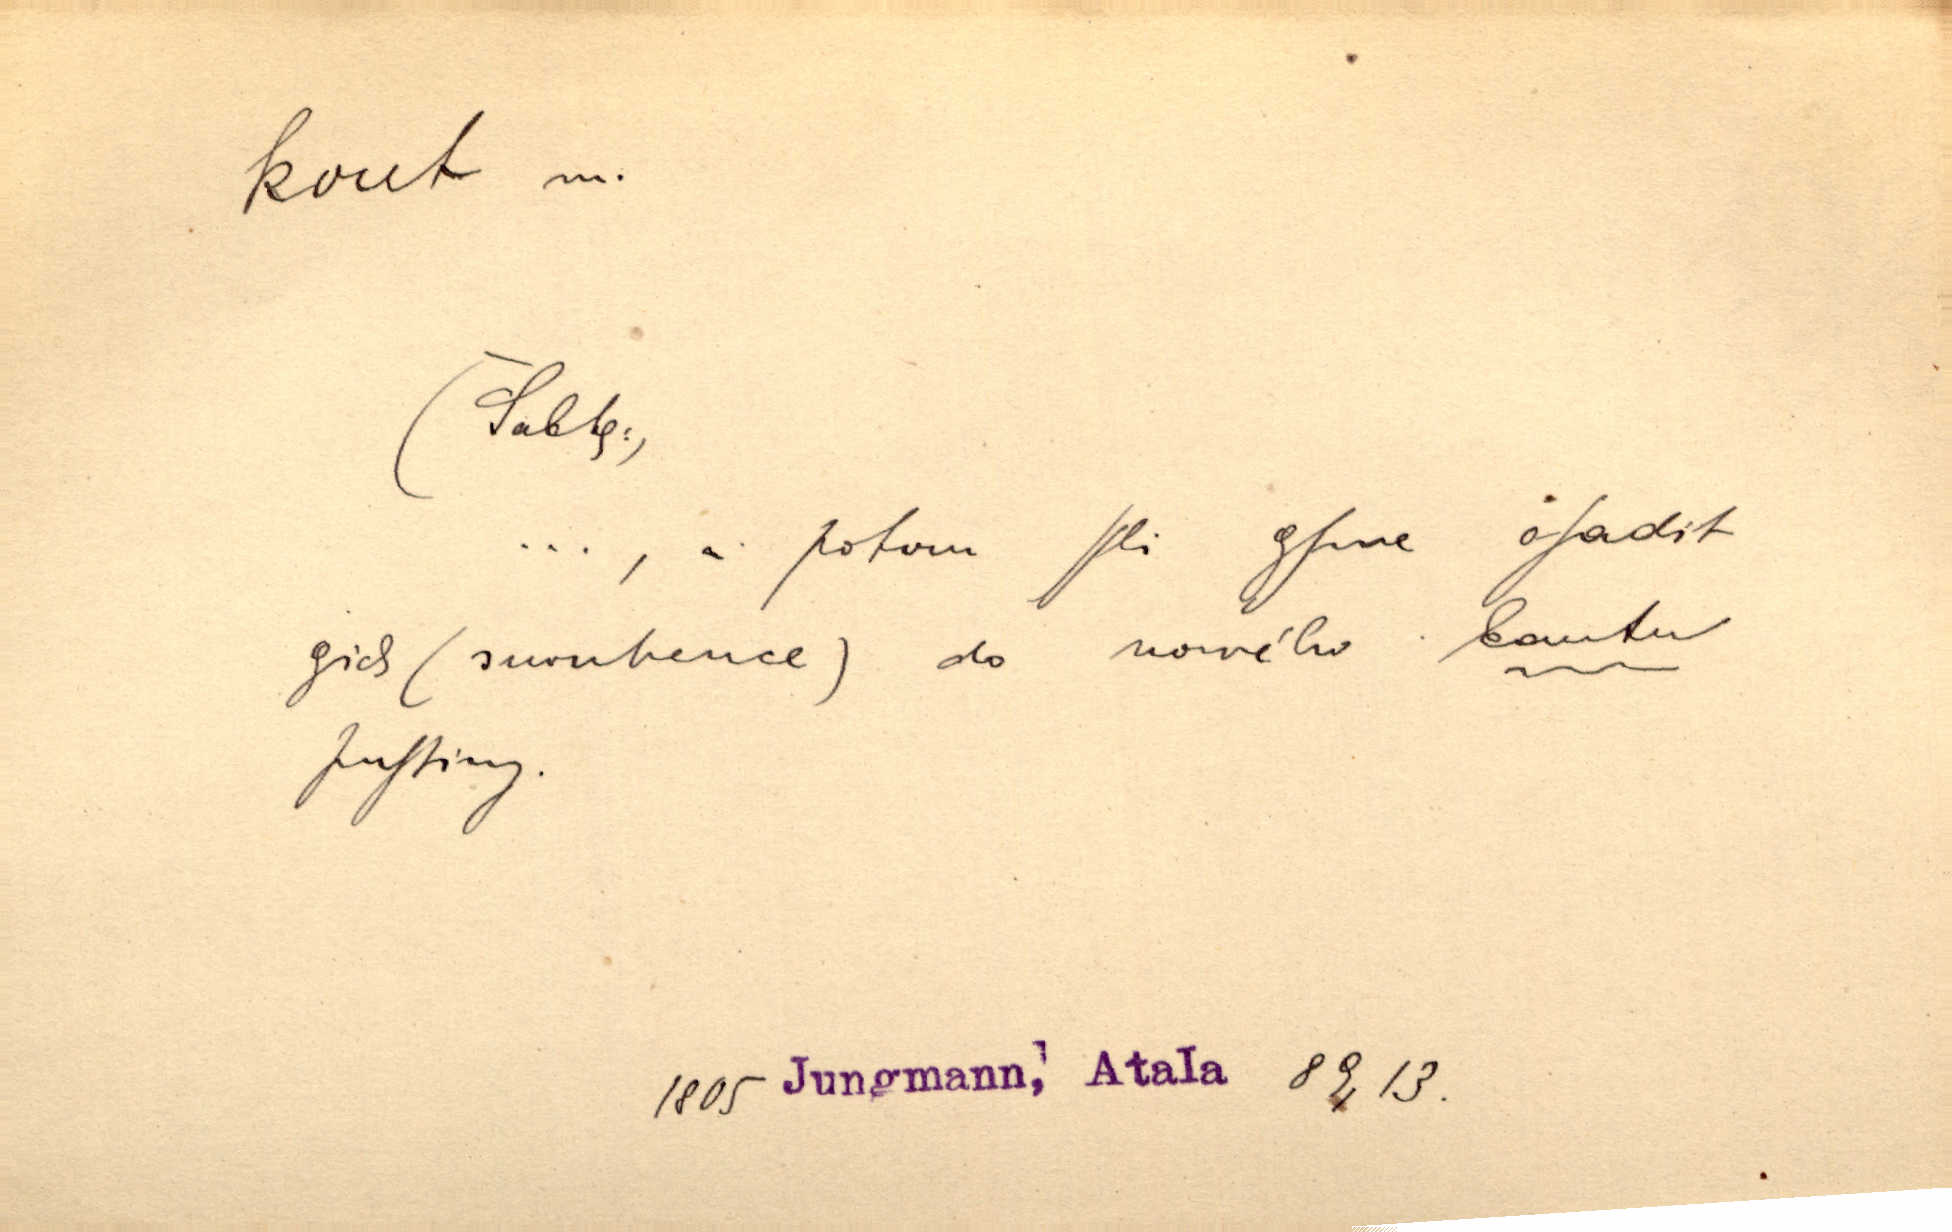 kout m.
(Šakt.,
..., a potom ſſli gſme oſadit
gich (snoubence) do nowého kautu
puſſtiny.
1805 Jungmann, Atala 89, 13.